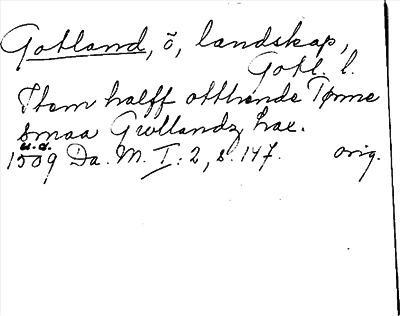 Gotland, ö, landskap,
Gotl. l.
Item halff otthende Tønne
smaa Gwllandz lax.
u.d.
1509 Da. M. I: 2, s. 147. orig.